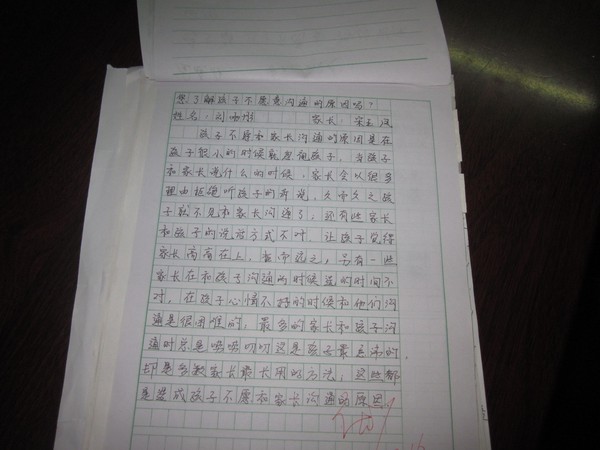 您了解孩子不愿意沟通的原因吗?
姓名: 家长:宋玉凤
孩子不愿和家长沟通的原因是在
孩子很小的时候就忽视孩子,当孩子
和家长说什么的时候,家长会以很多
理由拒绝听孩子的诉说,久而久之孩
子就不见和家长沟通了;还有些家长
和孩子的说话方式不对,让孩子觉得
家长高高在上,敬而远之,另有一些
家长在和孩子沟通的时候选的时间不
对,在孩子心情不好的时候和他们沟
通是很困难的,最多的家长和孩子沟
通时总是唠唠叨叨这是孩子最反感的
却是多数家长最长用的方法,这些都
是造成孩子不愿和家长沟通的原因